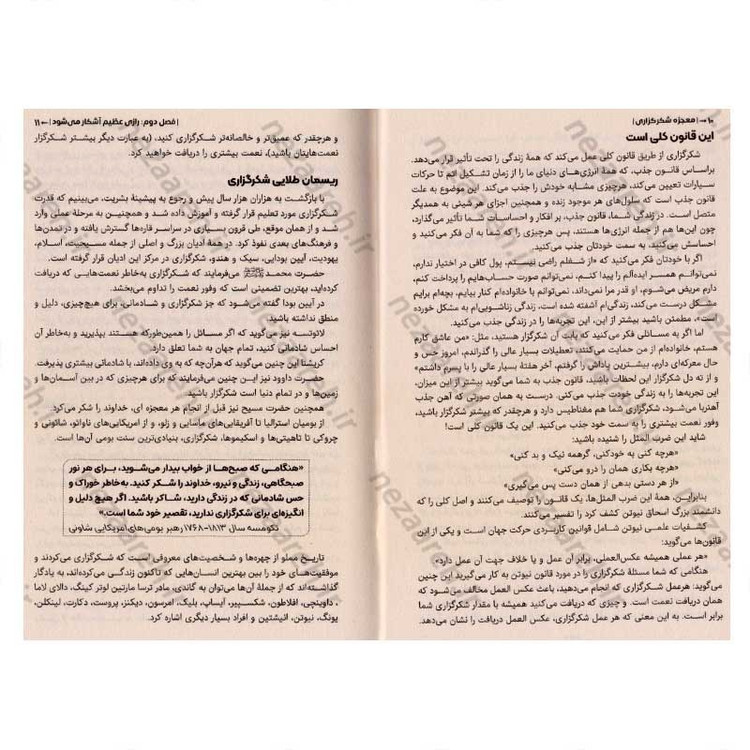 ۱۰ → | معجزه شکرگزاری |
این قانون کلی است
شکرگزاری از طریق قانون کلی عمل می‌کند که همۀ زندگی را تحت تأثیر قرار می‌دهد.
براساس قانون جذب، که همۀ انرژی‌های دنیای ما را از زمان تشکیل اتم تا حرکات
سیارات تعیین می‌کند، هرچیزی مشابه خودش را جذب می‌کند. این موضوع به علت
قانون جذب است که سلول‌های هر موجود زنده و همچنین اجزای هر شیئی به همدیگر
متصل است. در زندگی شما، قانون جذب، بر افکار و احساسات شما تأثیر می‌گذارد،
چون این‌ها هم از جمله انرژی‌ها هستند، پس هرچیزی را که شما به آن فکر می‌کنید و
احساسش می‌کنید، به سمت خودتان جذب می‌کنید.
اگر با خودتان فکر می‌کنید که «از شغلم راضی نیستم، پول کافی در اختیار ندارم،
نمی‌توانم همسر ایده‌آلم را پیدا کنم، نمی‌توانم صورت حساب‌هایم را پرداخت کنم،
دارم مریض می‌شوم، او قدر مرا نمی‌داند، نمی‌توانم با خانواده‌ام کنار بیایم، بچه‌ام برایم
مشکل درست می‌کند، زندگی‌ام آشفته شده است، زندگی زناشویی‌ام به مشکل خورده
است»، مطمئن باشید بیشتر از این، این تجربه‌ها را در زندگی جذب می‌کنید.
اما اگر به مسائلی فکر می‌کنید که بابت آن شکرگزار هستید، مثل: «من عاشق کارم
هستم، خانواده‌ام از من حمایت می‌کنند، تعطیلات بسیار عالی را گذراندم، امروز حس و
حال معرکه‌ای دارم، بیشترین پاداش را گرفتم، آخر هفتۀ بسیار عالی را با پسرم داشتم»
و از ته دل شکرگزار این لحظات باشید، قانون جذب به شما می‌گوید بیشتر از این میزان،
این تجربه‌ها را به زندگی خودت جذب می‌کنی. درست به همان صورتی که آهن جذب
آهنربا می‌شود، شکرگزاری شما هم مغناطیس دارد و هرچقدر که بیشتر شکرگزار باشید،
وفور نعمت بیشتری را به سمت خود جذب می‌کنید. این یک قانون کلی است!
شاید این ضرب المثل را شنیده باشید:
«هرچه کنی به خودکنی، گرهمه نیک و بد کنی»
«هرچه بکاری همان را درو می‌کنی»
«از هر دستی بدهی از همان دست پس می‌گیری»
بنابراین، همۀ این ضرب المثل‌ها، یک قانون را توصیف می‌کنند و اصل کلی را که
دانشمند بزرگ اسحاق نیوتن کشف کرد را تفسیر می‌کنند.
کشفیات علمی نیوتن شامل قوانین کاربردی حرکت جهان است و یکی از این
قانون‌ها می‌گوید:
«هر عملی همیشه عکس‌العملی، برابر آن عمل و یا خلاف جهت آن عمل دارد»
هنگامی که شما مسئلۀ شکرگزاری را در مورد قانون نیوتن به کار می‌گیرید این چنین
می‌گوید: هرعمل شکرگزاری که انجام می‌دهید، باعث عکس العمل مخالف می‌شود که
همان دریافت نعمت است. و چیزی که دریافت می‌کنید همیشه با مقدار شکرگزاری شما
برابر است. به این معنی که هر عمل شکرگزاری، عکس العمل دریافت را نشان می‌دهد.
| فصل دوم: رازی عظیم آشکار می‌شود | ← ۱۱
و هرچقدر که عمیق‌تر و خالصانه‌تر شکرگزاری کنید، (به عبارت دیگر بیشتر شکرگزار
نعمت‌هایتان باشید)، نعمت بیشتری را دریافت خواهید کرد.
ریسمان طلایی شکرگزاری
با بازگشت به هزاران هزار سال پیش و رجوع به پیشینۀ بشریت، می‌بینیم که قدرت
شکرگزاری مورد تعلیم قرار گرفته و آموزش داده شد و همچنین به مرحلۀ عملی وارد
شد و از همان موقع، طی قرون بسیاری در سراسر قاره‌ها گسترش یافته و در تمدن‌ها
و فرهنگ‌های بعدی نفوذ کرد. در همۀ ادیان بزرگ و اصلی از جمله مسیحیت، اسلام،
یهودیت، آیین بودایی، سیک و هندو، شکرگزاری در مرکز این ادیان قرار گرفته است.
حضرت محمد ﷺ می‌فرمایند که شکرگزاری به‌خاطر نعمت‌هایی که دریافت
کرده‌اید، بهترین تضمینی است که وفور نعمت را تداوم می‌بخشد.
در آیین بودا گفته می‌شود که جز شکرگزاری و شادمانی، برای هیچ‌چیزی، دلیل و
منطق نداشته باشید.
لائوتسه نیز می‌گوید که اگر مسائل را همین‌طورکه هستند بپذیرید و به‌خاطر آن
احساس شادمانی کنید، تمام جهان به شما تعلق دارد.
کریشنا این چنین می‌گوید که هرآن‌چه که به وی داده‌اند، با شادمانی بیشتری پذیرفت.
حضرت داوود نیز این چنین می‌فرمایند که برای هرچیزی که در بین آسمان‌ها و
زمین‌ها و در تمام دنیا است شکرگزار باشید.
همچنین حضرت مسیح نیز قبل از انجام هر معجزه ای، خداوند را شکر می‌کرد.
از بومیان استرالیا تا آفریقایی‌های ماسایی و زلو، و از امریکایی‌های ناواثو، شائونی و
چروکی تا تاهیتی‌ها و اسکیموها، شکرگزاری، بنیادی‌ترین سنت بومی آن‌ها است.
«هنگامی که صبح‌ها از خواب بیدار می‌شوید، برای هر نور
صبحگاهی، زندگی و نیرو، خداوند را شکر کنید. به‌خاطر خوراک و
حس شادمانی که در زندگی دارید، شاکر باشید. اگر هیچ دلیل و
انگیزه‌ای برای شکرگزاری ندارید، تقصیر خود شما است.»
تکومسه سال ۱۸۱۳-۱۷۶۸ رهبر بومی‌های آمریکایی شاونی
تاریخ مملو از چهره‌ها و شخصیت‌های معروفی است که شکرگزاری می‌کردند و
موفقیت‌های خود را بین بهترین انسان‌هایی که تاکنون زندگی می‌کرده‌اند، به یادگار
گذاشته‌اند که از جملۀ آن‌ها می‌توان به گاندی، مادر ترسا مارتین لوتر کینگ، دالای لاما
، داوینچی، افلاطون، شکسپیر، آیساپ، بلیک، امرسون، دیکنز، پروست، دکارت، لینکلن،
یونگ، نیوتن، انیشتین و افراد بسیار دیگری اشاره کرد.
nezaareh.ir